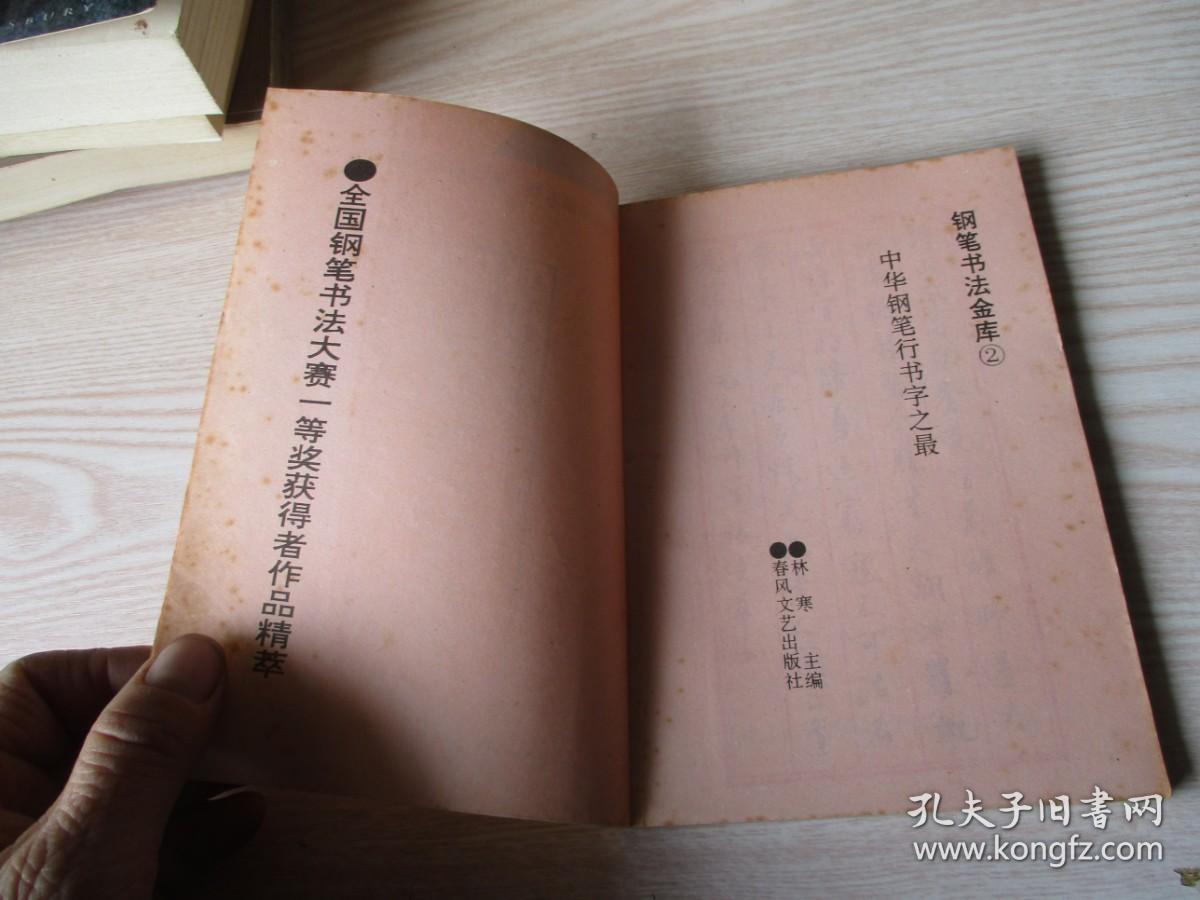 SBURY
●全国钢笔书法大赛一等奖获得者作品精萃
钢笔书法金库②
中华钢笔行书字之最
●林 寒 主编
●春风文艺出版社
孔夫子旧书网
www.kongfz.com